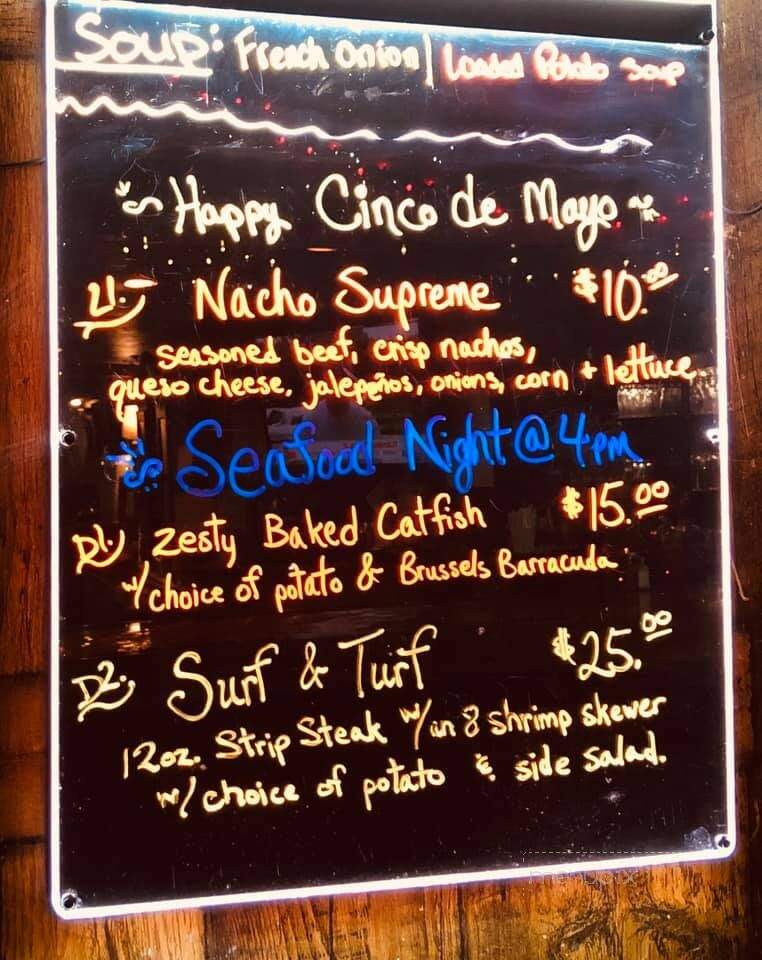 Soup: French Onion | Loaded Potato Soup
Happy Cinco de Mayo
L1. Nacho Supreme $10.00
seasoned beef, crisp nachos,
queso cheese, jalepeños, onions, corn + lettuce
Seafood Night @ 4pm
D1. Zesty Baked Catfish $15.00
w/ choice of potato & Brussels Barracuda
D2. Surf & Turf $25.00
12oz. Strip Steak w/ an 8 shrimp skewer
w/ choice of potato & side salad.